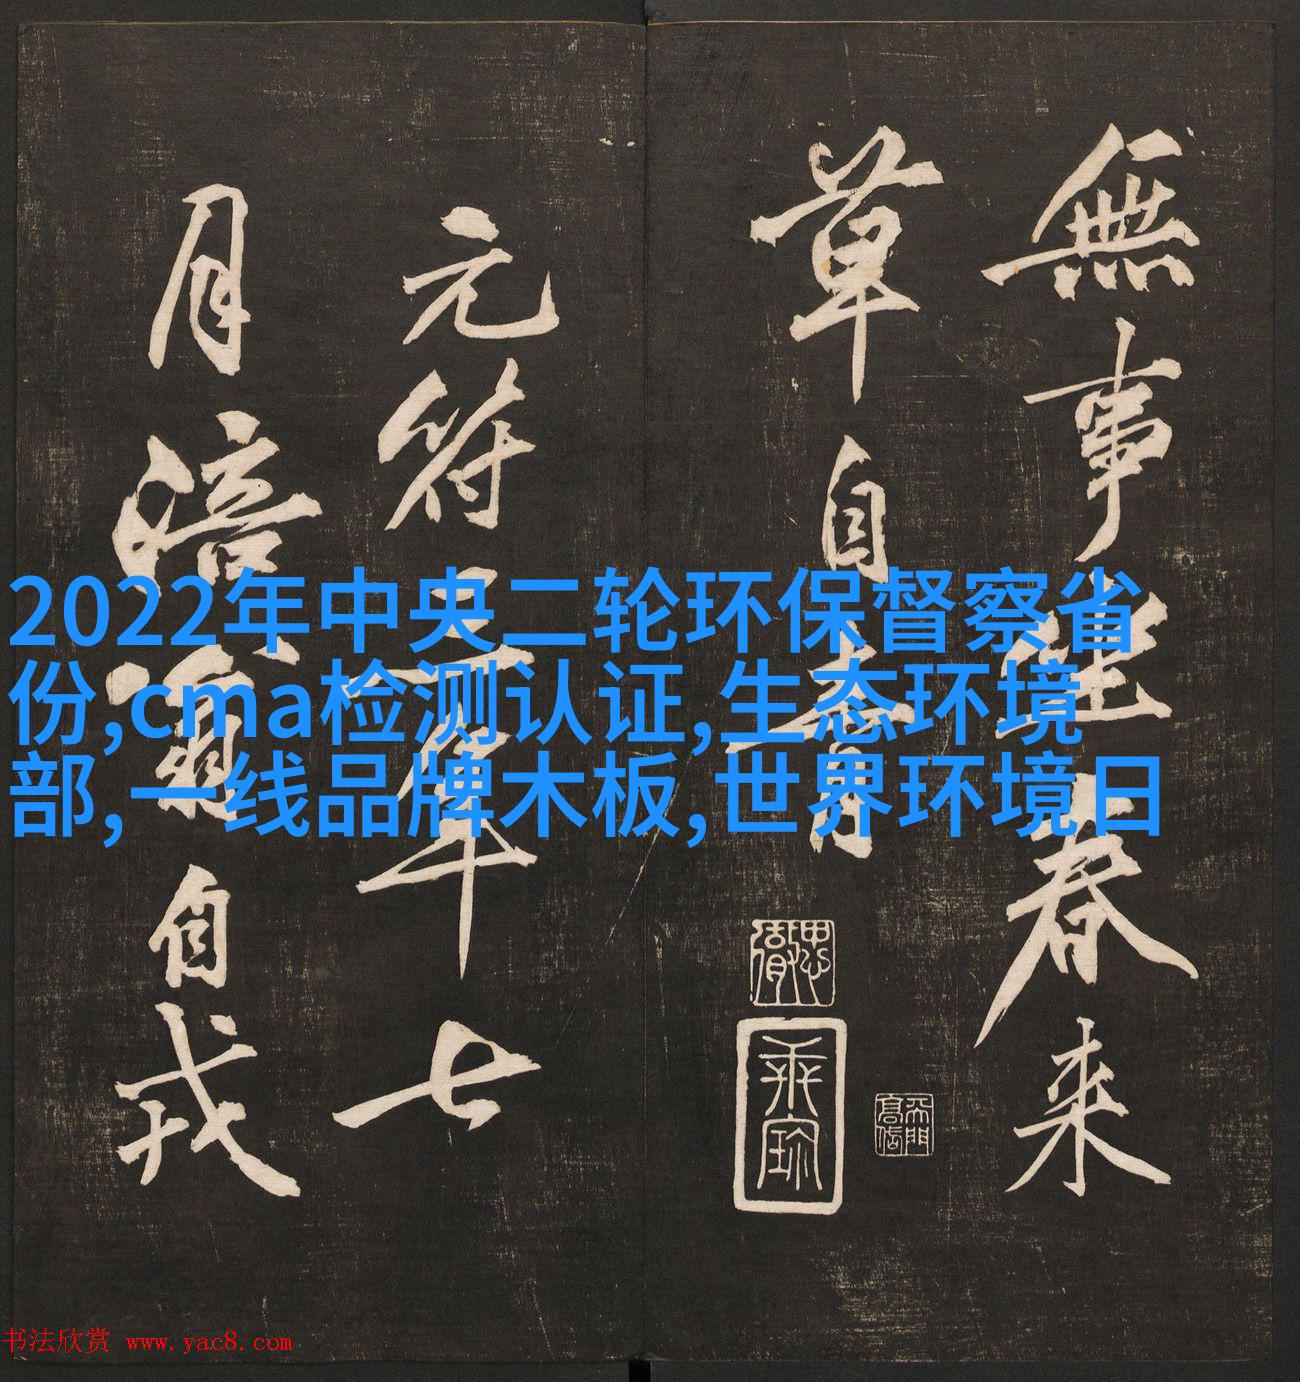 無事迷春来
草自青
元符三年七
月涪翁自戎
2022年中央二轮环保督察省
份,cma检测认证,生态环境
部,一线品牌木板,世界环境日
书法欣赏 www.yac8.com